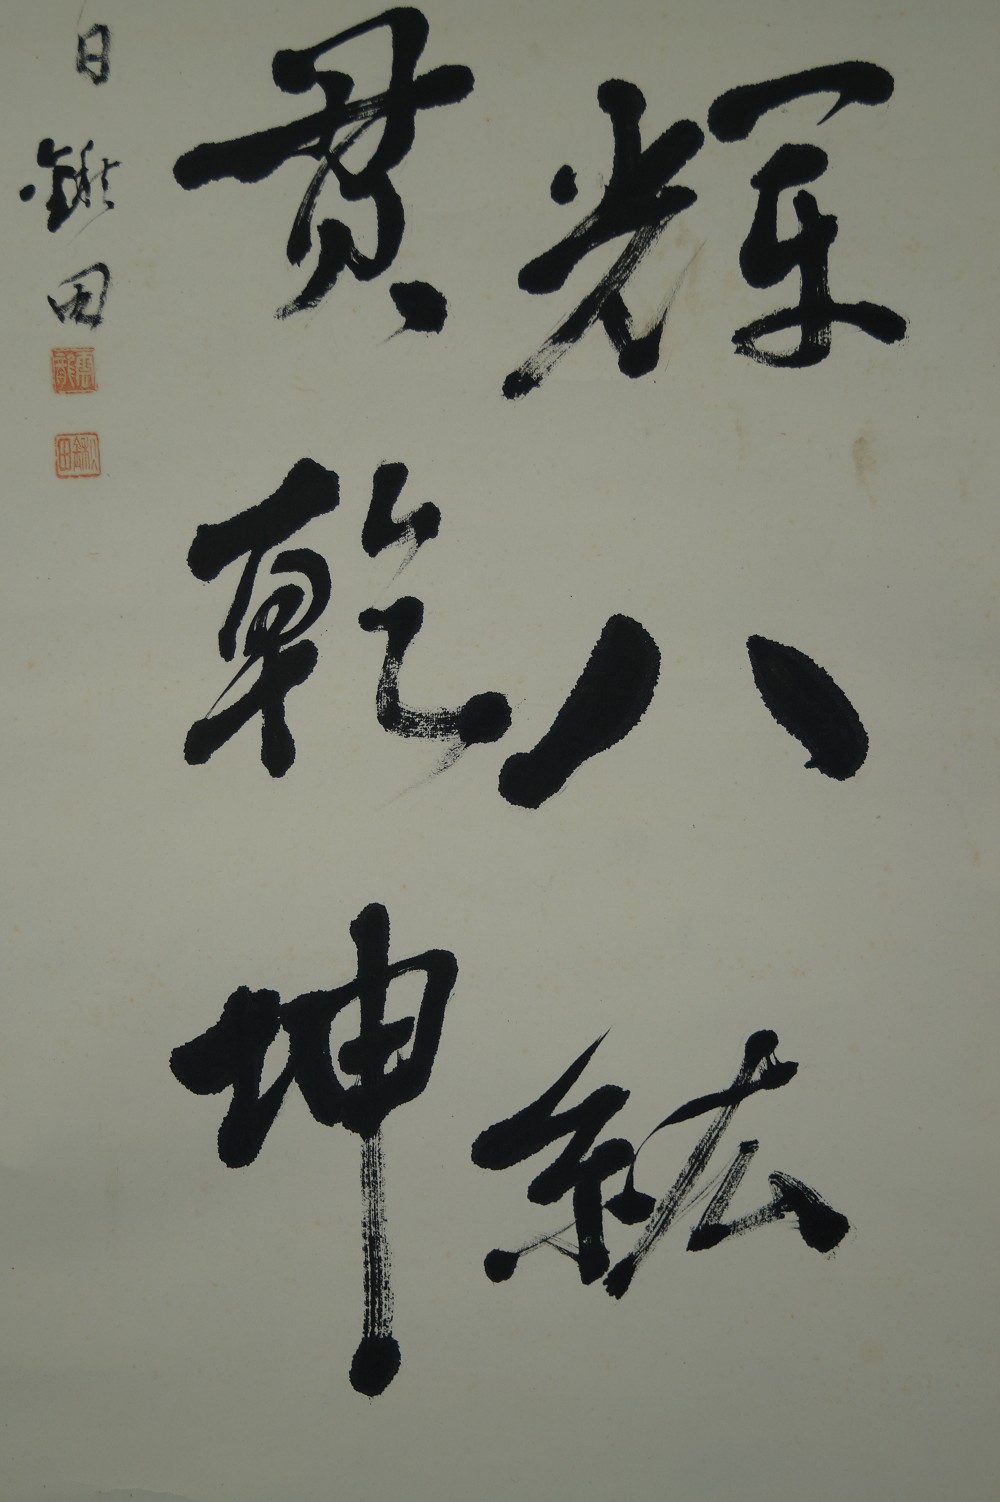 輝八紘
貫乾坤
日鍬田